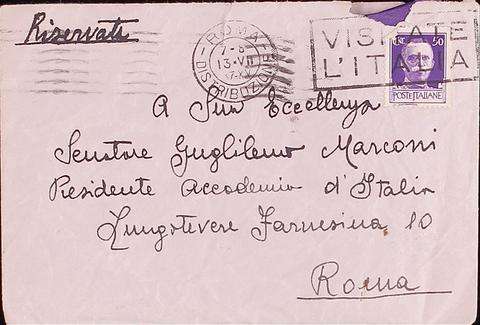 Riservata
ROMA
7-8
13·VII
DISTRIBUZIONE
VISITATE
L'ITALIA
50
POSTE ITALIANE
A Sua Eccellenza
Senatore Guglielmo Marconi
Presidente Accademia d'Italia
Lungotevere Farnesina, 10
Roma